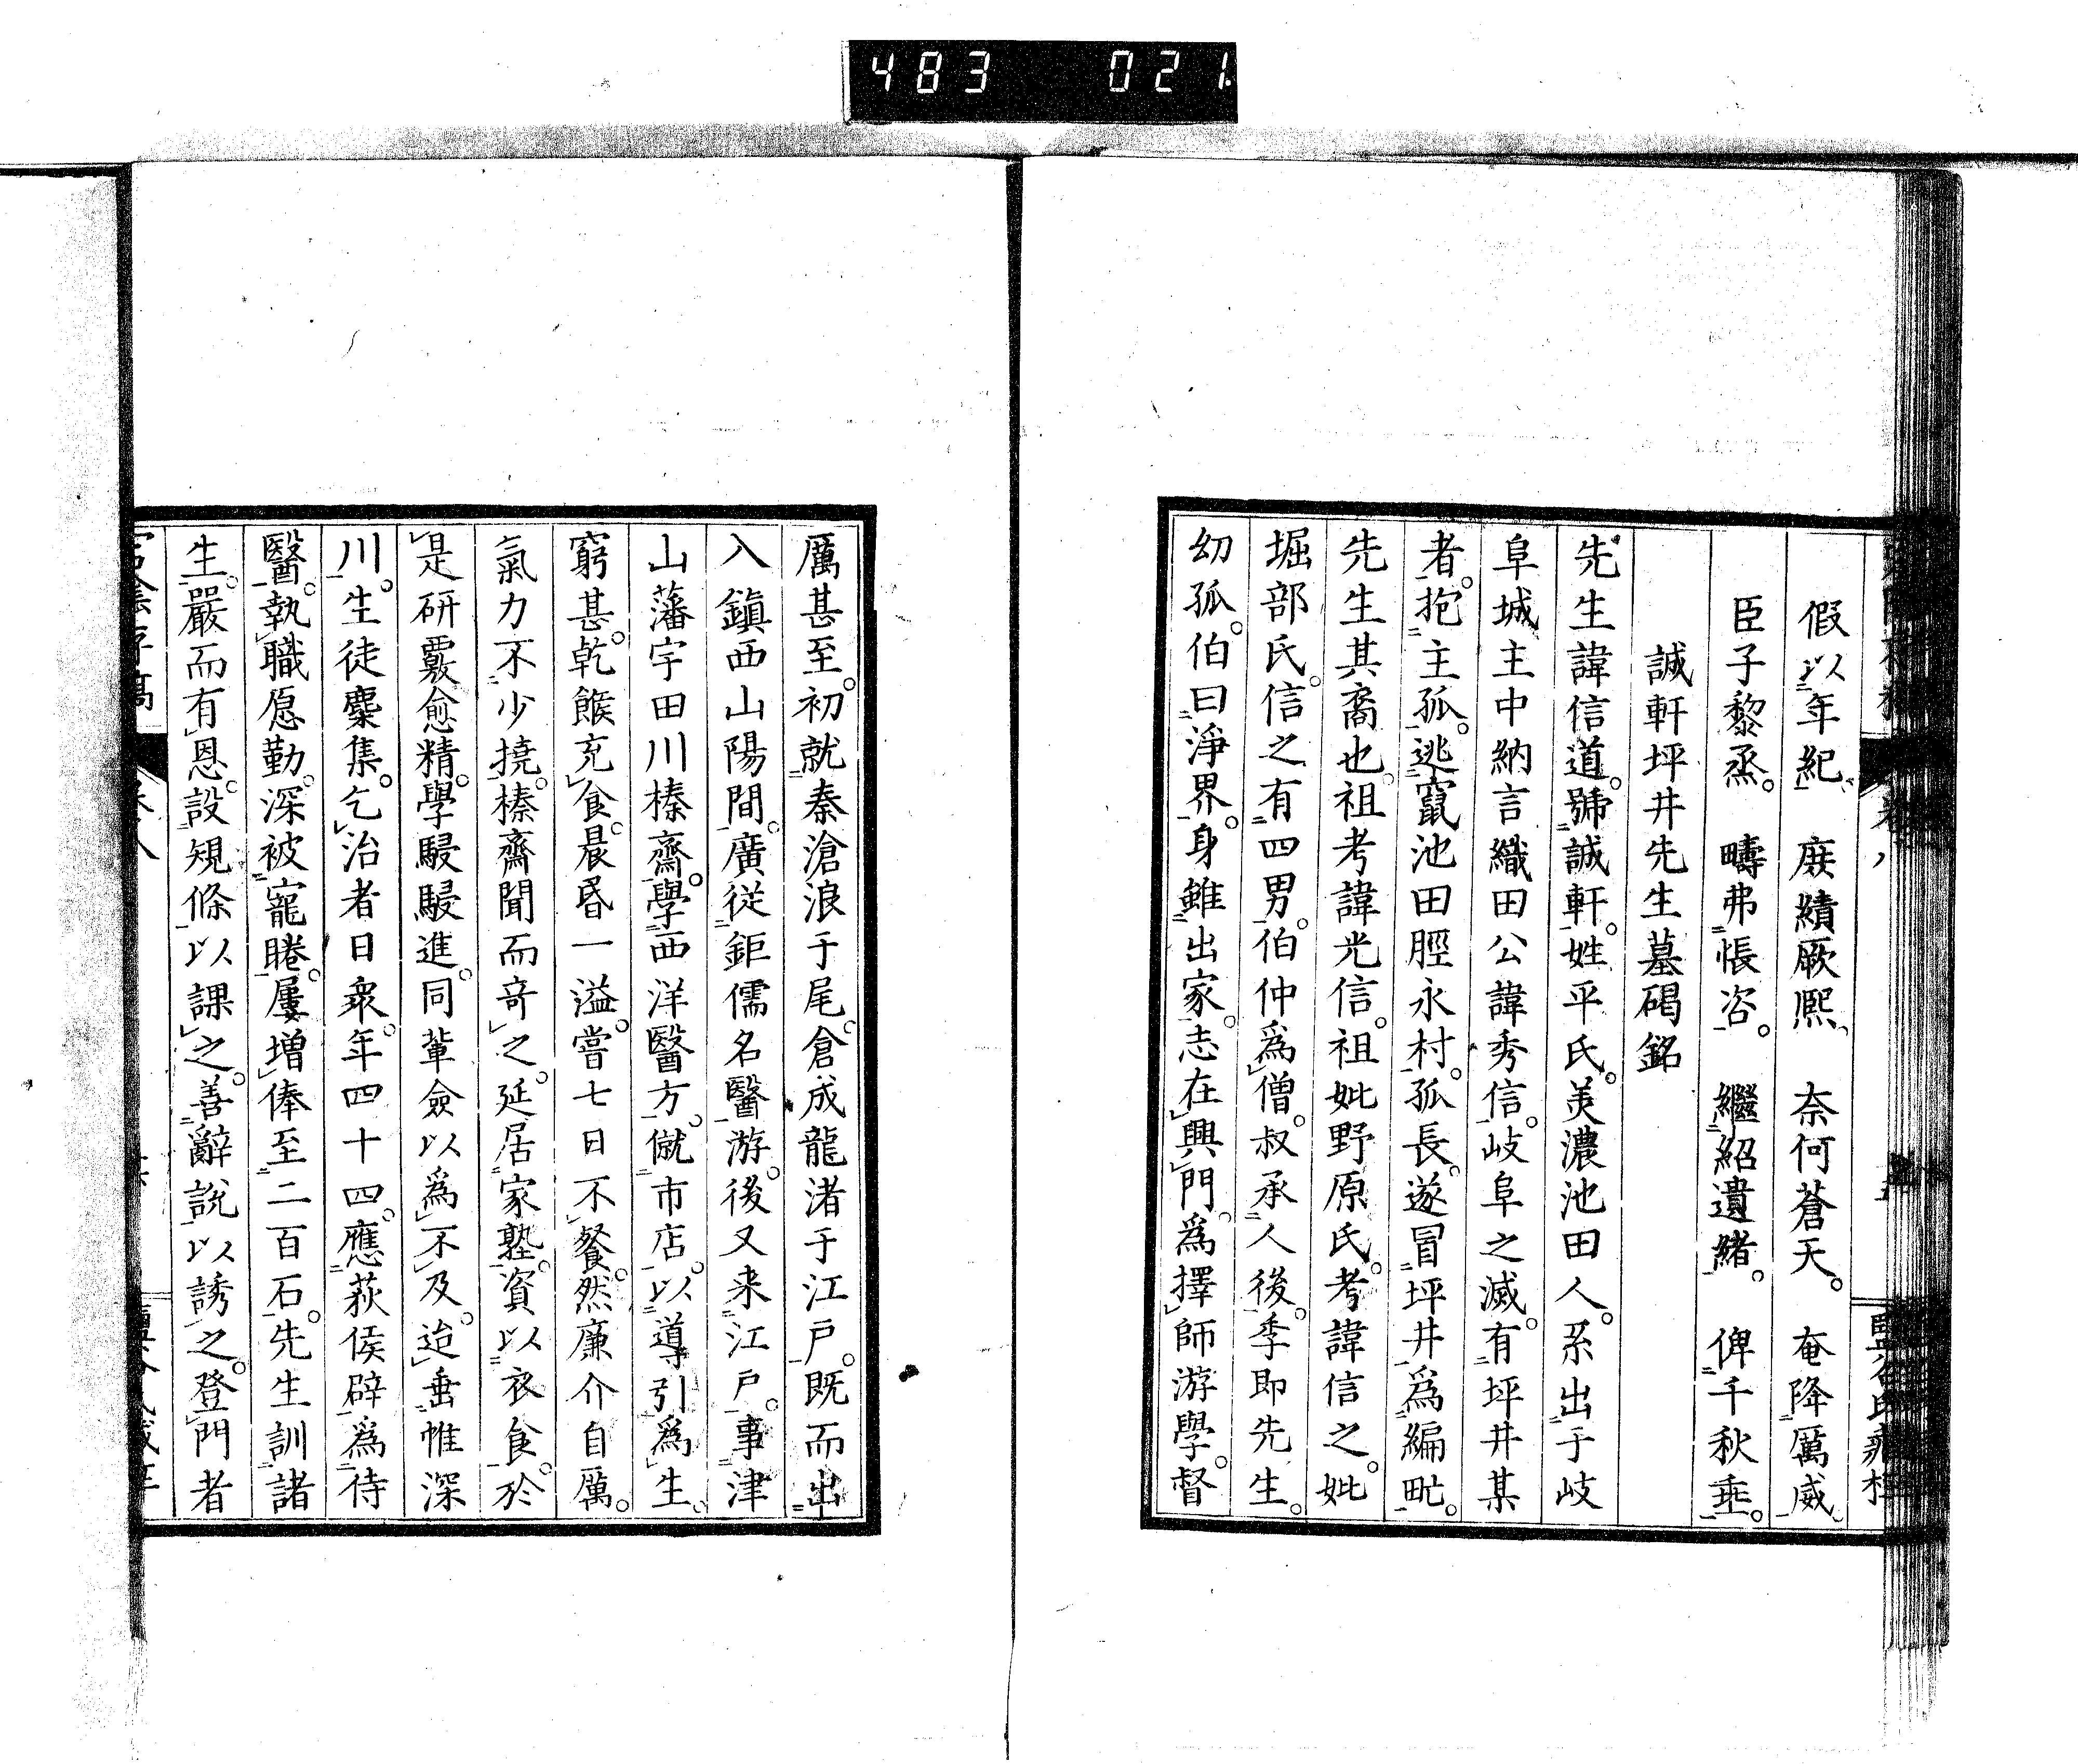 483 021
假以年紀、 庶績厥熙、 奈何蒼天。 奄降厲威。
臣子黎烝。 疇弗悵咨。 繼紹遺緒。 俾千秋垂。
誠軒坪井先生墓碣銘
先生諱信道。號誠軒。姓平氏。美濃池田人。系出于岐
阜城主中納言織田公諱秀信。岐阜之滅。有坪井某
者。抱主孤。逃竄池田脛永村。孤長。遂冒坪井爲編甿。
先生其裔也。祖考諱光信。祖妣野原氏。考諱信之。妣
堀部氏。信之有四男。伯仲爲僧。叔承人後。季即先生。
幼孤。伯曰淨界。身雖出家。志在興門。爲擇師游學。督
厲甚至。初就秦滄浪于尾。倉成龍渚于江戶。既而出
入鎭西山陽間。廣從鉅儒名醫游。後又来江戶。事津
山藩宇田川榛齋。學西洋醫方。僦市店。以導引爲生。
窮甚。乾餱充食。晨昏一溢。嘗七日不餐。然廉介自厲。
氣力不少撓。榛齋聞而奇之。延居家塾。資以衣食。於
是研覈愈精。學駸駸進。同輩僉以爲不及。迨垂帷深
川。生徒麇集。乞治者日衆。年四十四。應萩侯辟爲侍
醫。執職愿勤。深被寵睠。屢增俸至二百石。先生訓諸
生。嚴而有恩。設規條以課之。善辭說以誘之。登門者